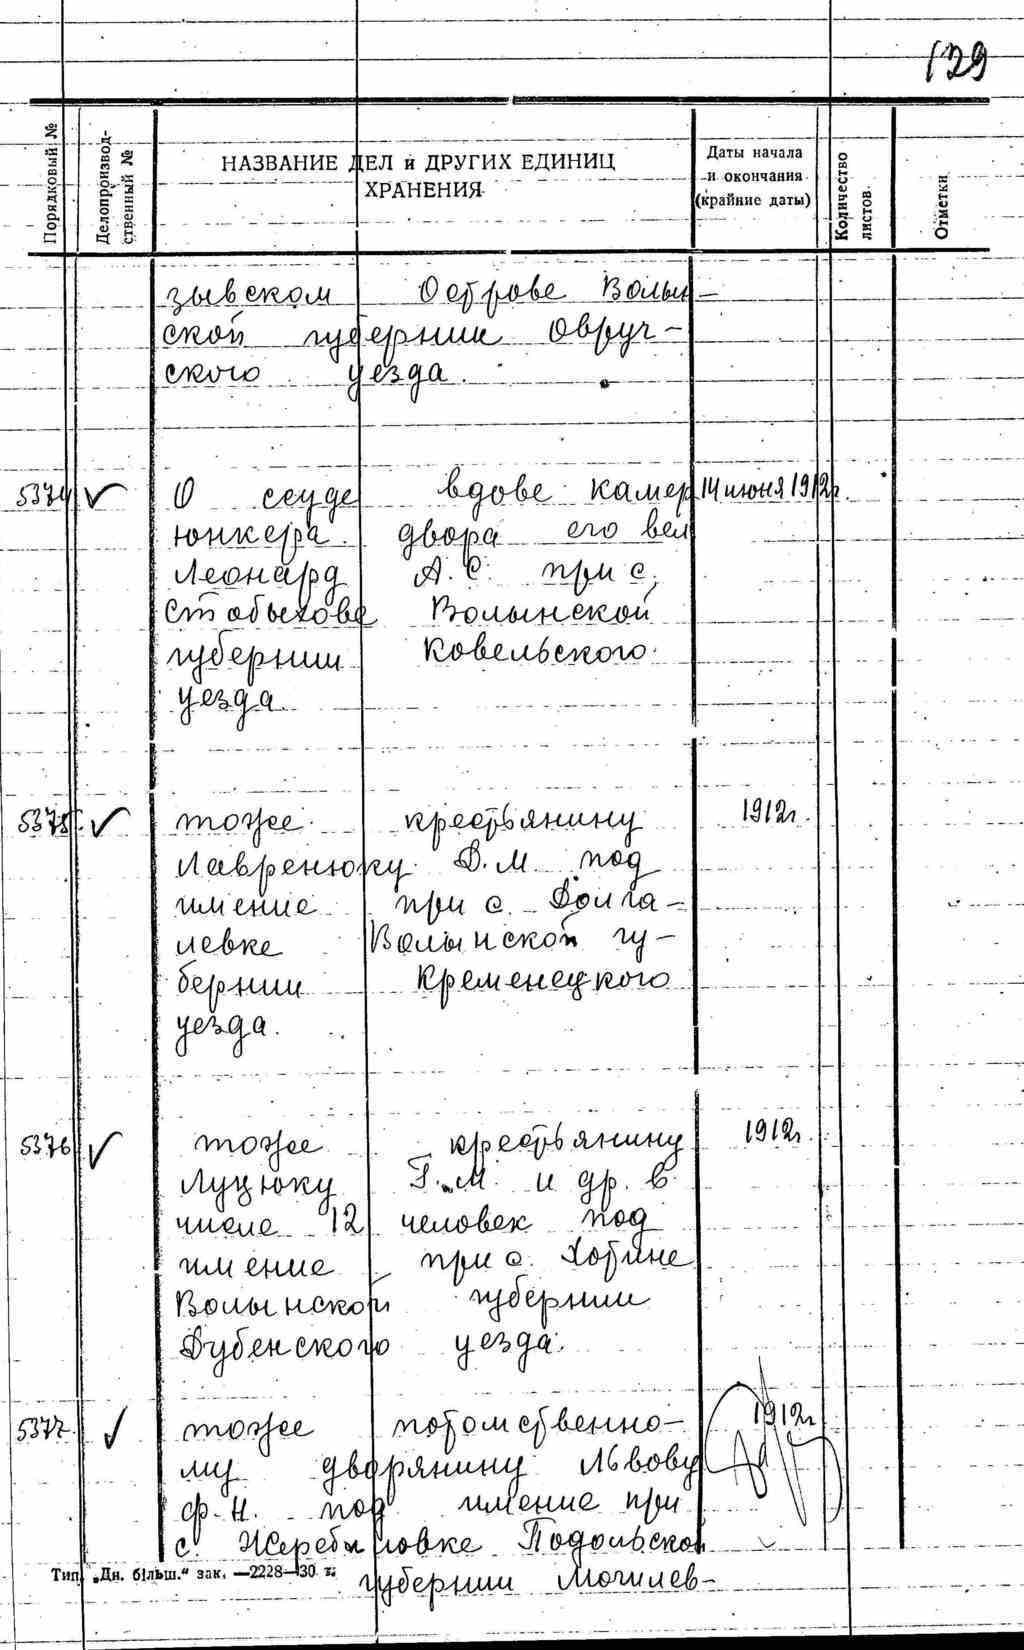 129
Порядковый №
Делопроизвод-
ственный №
НАЗВАНИЕ ДЕЛ и ДРУГИХ ЕДИНИЦ
ХРАНЕНИЯ
Даты начала
и окончания
(крайние даты)
Количество
листов
Отметки
зывском Острове Волын-
ской губернии Овруч-
ского уезда.
5374 ✓ О ссуде вдове камер 14 июня 1912г.
юнкера двора его вел
Леонард А.С. при с.
Стобыхове Волынской
губернии Ковельского
уезда.
5375 ✓ тоже крестьянину 1912г.
Лавренюку Д.М. под
имение при с. Долга-
левке Волынской гу-
бернии Кременецкого
уезда.
5376 ✓ тоже крестьянину 1912г.
Луцюку Г.М. и др. в
числе 12 человек под
имение при с. Хотине
Волынской губернии
Дубенского уезда.
5377 ✓ тоже потомственно- 1912г
му дворянину Львову
Ф.Н. под имение при
с. Жеребиловке Подольской
Тип. „Дн. більш.“ зак. —2228—30 т.
губернии Могилев-